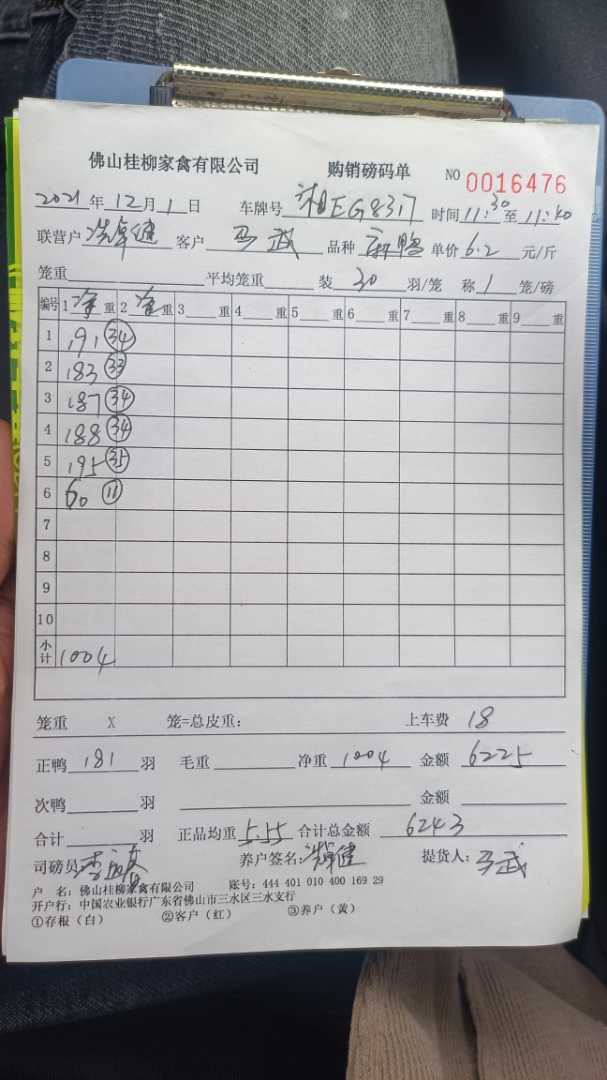 佛山桂柳家禽有限公司 购销磅码单 NO 0016476
2021年12月1日 车牌号 湘EG8317 时间11:30至11:40
联营户 冼焯健 客户 马武 品种 麻鸭 单价6.2元/斤
笼重 平均笼重 装 30 羽/笼 称 1 笼/磅
编号 1 净 重 2 净 重 3 重 4 重 5 重 6 重 7 重 8 重 9 重
1 191 34
2 183 33
3 187 34
4 188 34
5 195 35
6 60 11
7
8
9
10
小计 1004
笼重 X 笼=总皮重: 上车费 18
正鸭 181 羽 毛重 净重 1004 金额 6225
次鸭 羽 金额
合计 羽 正品均重 5.55 合计总金额 6243
司磅员 养户签名: 冼焯健 提货人: 马武
户 名: 佛山桂柳家禽有限公司 账号: 444 401 010 400 169 29
开户行: 中国农业银行广东省佛山市三水区三水支行
①存根(白) ②客户(红) ③养户(黄)